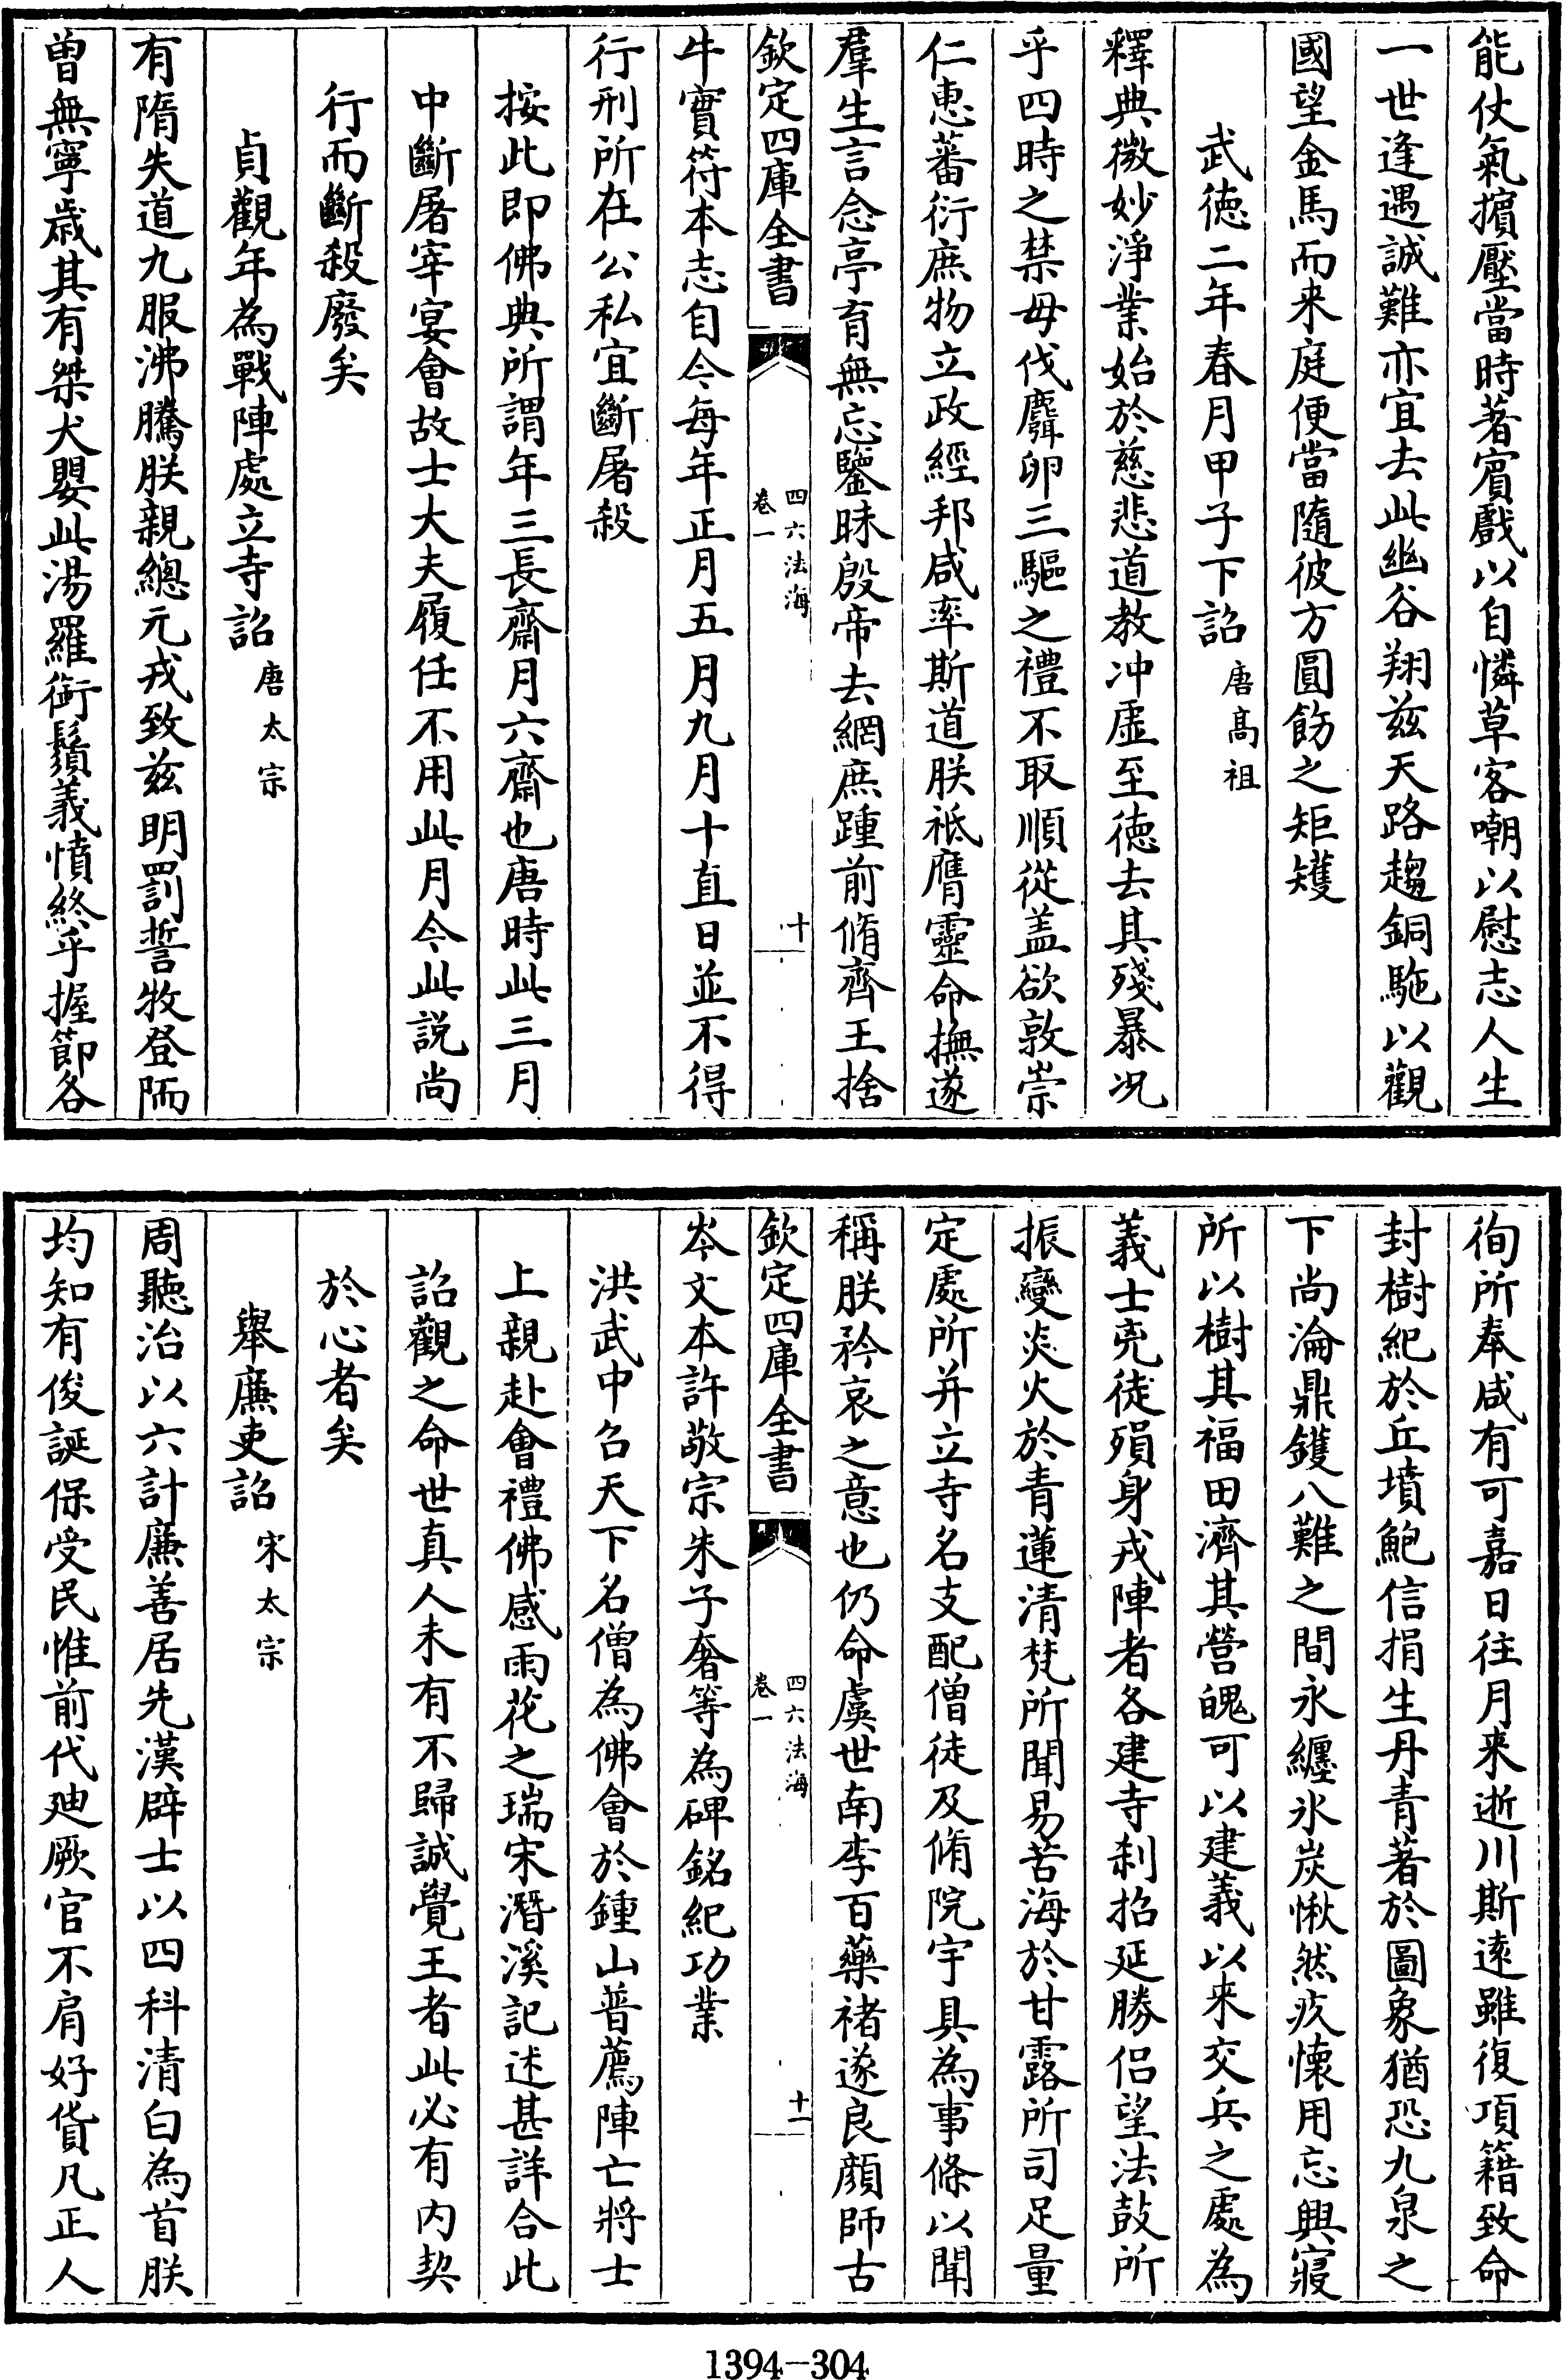 能仗氣擯壓當時著賓戲以自憐草客嘲以慰志人生
一世逢遇誠難亦宜去此幽谷翔兹天路趨銅駞以觀
國望金馬而来庭便當隨彼方圓飭之矩矱
武徳二年春月甲子下詔唐髙祖
釋典微妙淨業始於慈悲道教冲虚至徳去其殘暴况
乎四時之禁毋伐麛卵三驅之禮不取順從盖欲敦崇
仁恵蕃衍庶物立政經邦咸率斯道朕祗膺靈命撫遂
羣生言念亭育無忘鑒昧殷帝去網庶踵前脩齊王捨
欽定四庫全書
四六法海
卷一
十
牛實符本志自今每年正月五月九月十直日並不得
行刑所在公私宜斷屠殺
按此即佛典所謂年三長齋月六齋也唐時此三月
中斷屠宰宴會故士大夫履任不用此月今此説尚
行而斷殺廢矣
貞觀年為戰陣處立寺詔唐太宗
有隋失道九服沸騰朕親總元戎致兹明罰誓牧登陑
曽無寧歳其有桀犬嬰此湯羅銜鬚義憤終乎握節各
徇所奉咸有可嘉日往月来逝川斯逺雖復項籍致命
封樹紀於丘墳鮑信捐生丹青著於圖象猶恐九泉之
下尚淪鼎鑊八難之間永纏氷炭愀然疚懐用忘興寢
所以樹其福田濟其營魄可以建義以来交兵之處為
義士克徒殞身戎陣者各建寺刹招延勝侣望法鼓所
振變炎火於青蓮清梵所聞易苦海於甘露所司足量
定處所并立寺名支配僧徒及脩院宇具為事條以聞
稱朕矜哀之意也仍命虞世南李百藥禇遂良顔師古
欽定四庫全書
四六法海
卷一
十一
岑文本許敬宗朱子奢等為碑銘紀功業
洪武中召天下名僧為佛會於鍾山普薦陣亡將士
上親赴會禮佛感雨花之瑞宋潛溪記述甚詳合此
詔觀之命世真人未有不歸誠覺王者此必有内契
於心者矣
舉廉吏詔宋太宗
周聽治以六計廉善居先漢辟士以四科清白為首朕
均知有俊誕保受民惟前代廸厥官不肩好貨凡正人
1394-304